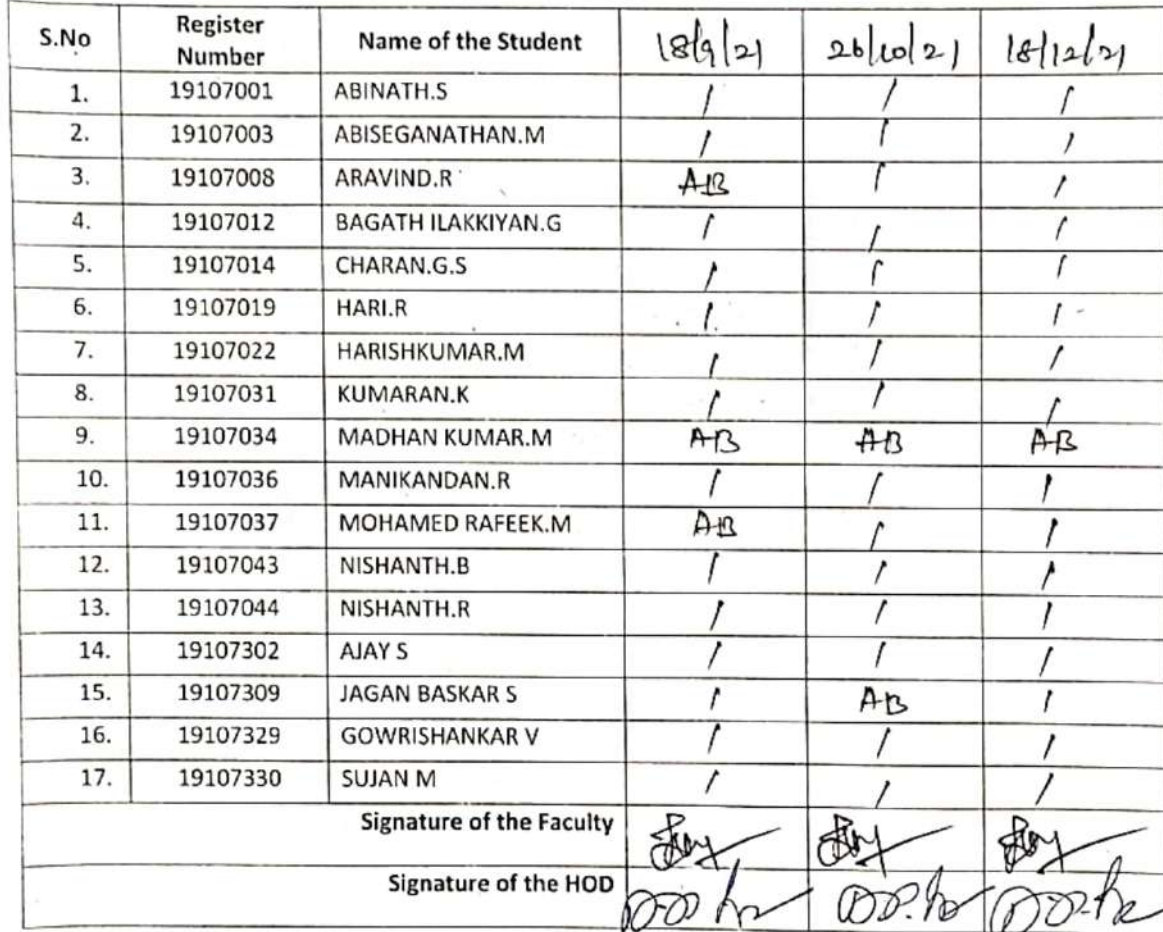 S.No Register Number Name of the Student 18/9/21 26/10/21 18/12/21
1. 19107001 ABINATH.S / / /
2. 19107003 ABISEGANATHAN.M / / /
3. 19107008 ARAVIND.R AB / /
4. 19107012 BAGATH ILAKKIYAN.G / / /
5. 19107014 CHARAN.G.S / / /
6. 19107019 HARI.R / / /
7. 19107022 HARISHKUMAR.M / / /
8. 19107031 KUMARAN.K / / /
9. 19107034 MADHAN KUMAR.M AB AB AB
10. 19107036 MANIKANDAN.R / / /
11. 19107037 MOHAMED RAFEEK.M AB / /
12. 19107043 NISHANTH.B / / /
13. 19107044 NISHANTH.R / / /
14. 19107302 AJAY S / / /
15. 19107309 JAGAN BASKAR S / AB /
16. 19107329 GOWRISHANKAR V / / /
17. 19107330 SUJAN M / / /
Signature of the Faculty
Signature of the HOD